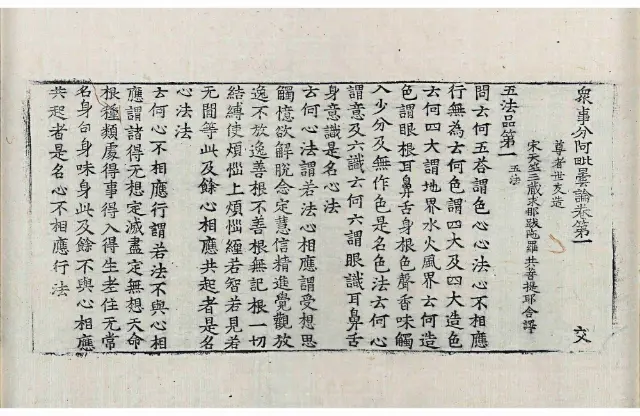 衆事分阿毗曇論卷第一 交
尊者世友造
宋天竺三藏求那跋陀羅共菩提耶舍譯
五法品第一 五法
問云何五荅謂色心心法心不相應
行無為云何色謂四大及四大造色
云何四大謂地界水火風界云何造
色謂眼根耳鼻舌身根色聲香味觸
入少分及無作色是名色法云何心
謂意及六識云何六謂眼識耳鼻舌
身意識是名心法
云何心法謂若法心相應謂受想思
觸憶欲解脫念定慧信精進覺觀放
逸不放逸善根不善根無記根一切
結縛使煩惱上煩惱纏若智若見若
无間等此及餘心相應共起者是名
心法法
云何心不相應行謂若法不與心相
應謂諸得无想定滅盡定無想天命
根種類處得事得入得生老住无常
名身句身味身此及餘不與心相應
共起者是名心不相應行法